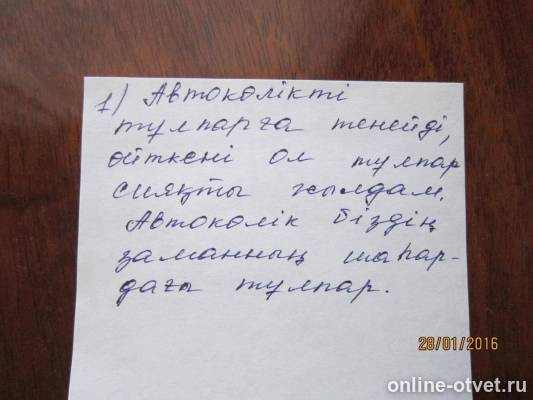 1) Автокөлікті
тұлпарға теңейді,
өйткені ол тұлпар
сияқты жылдам.
Автокөлік біздің
заманның шаһар-
дағы тұлпар.
28/01/2016
online-otvet.ru